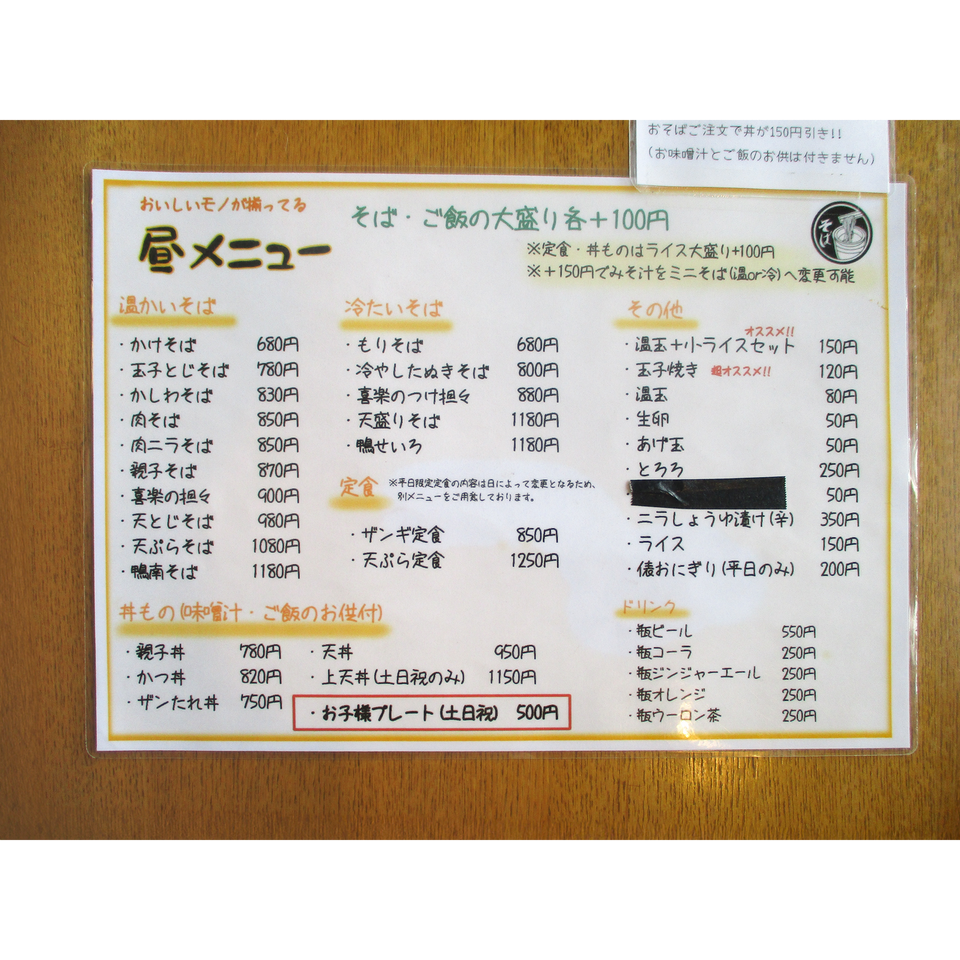 おそばご注文で丼が150円引き!!
(お味噌汁とご飯のお供は付きません)
おいしいモノが揃ってる
昼メニュー
そば・ご飯の大盛り各+100円
※定食・丼ものはライス大盛り+100円
※+150円でみそ汁をミニそば(温or冷)へ変更可能
そば
温かいそば
・かけそば 680円
・玉子とじそば 780円
・かしわそば 830円
・肉そば 850円
・肉ニラそば 850円
・親子そば 870円
・喜楽の担々 900円
・天とじそば 980円
・天ぷらそば 1080円
・鴨南そば 1180円
冷たいそば
・もりそば 680円
・冷やしたぬきそば 800円
・喜楽のつけ担々 880円
・天盛りそば 1180円
・鴨せいろ 1180円
定食
※平日限定定食の内容は日によって変更となるため、
別メニューをご用意しております。
・ザンギ定食 850円
・天ぷら定食 1250円
その他
オススメ!!
・温玉+小ライスセット 150円
・玉子焼き 超オススメ!! 120円
・温玉 80円
・生卵 50円
・あげ玉 50円
・とろろ 250円
50円
・ニラしょうゆ漬け(辛) 350円
・ライス 150円
・俵おにぎり(平日のみ) 200円
丼もの(味噌汁・ご飯のお供付)
・親子丼 780円
・かつ丼 820円
・ザンたれ丼 750円
・天丼 950円
・上天丼(土日祝のみ) 1150円
・お子様プレート(土日祝) 500円
ドリンク
・瓶ビール 550円
・瓶コーラ 250円
・瓶ジンジャーエール 250円
・瓶オレンジ 250円
・瓶ウーロン茶 250円